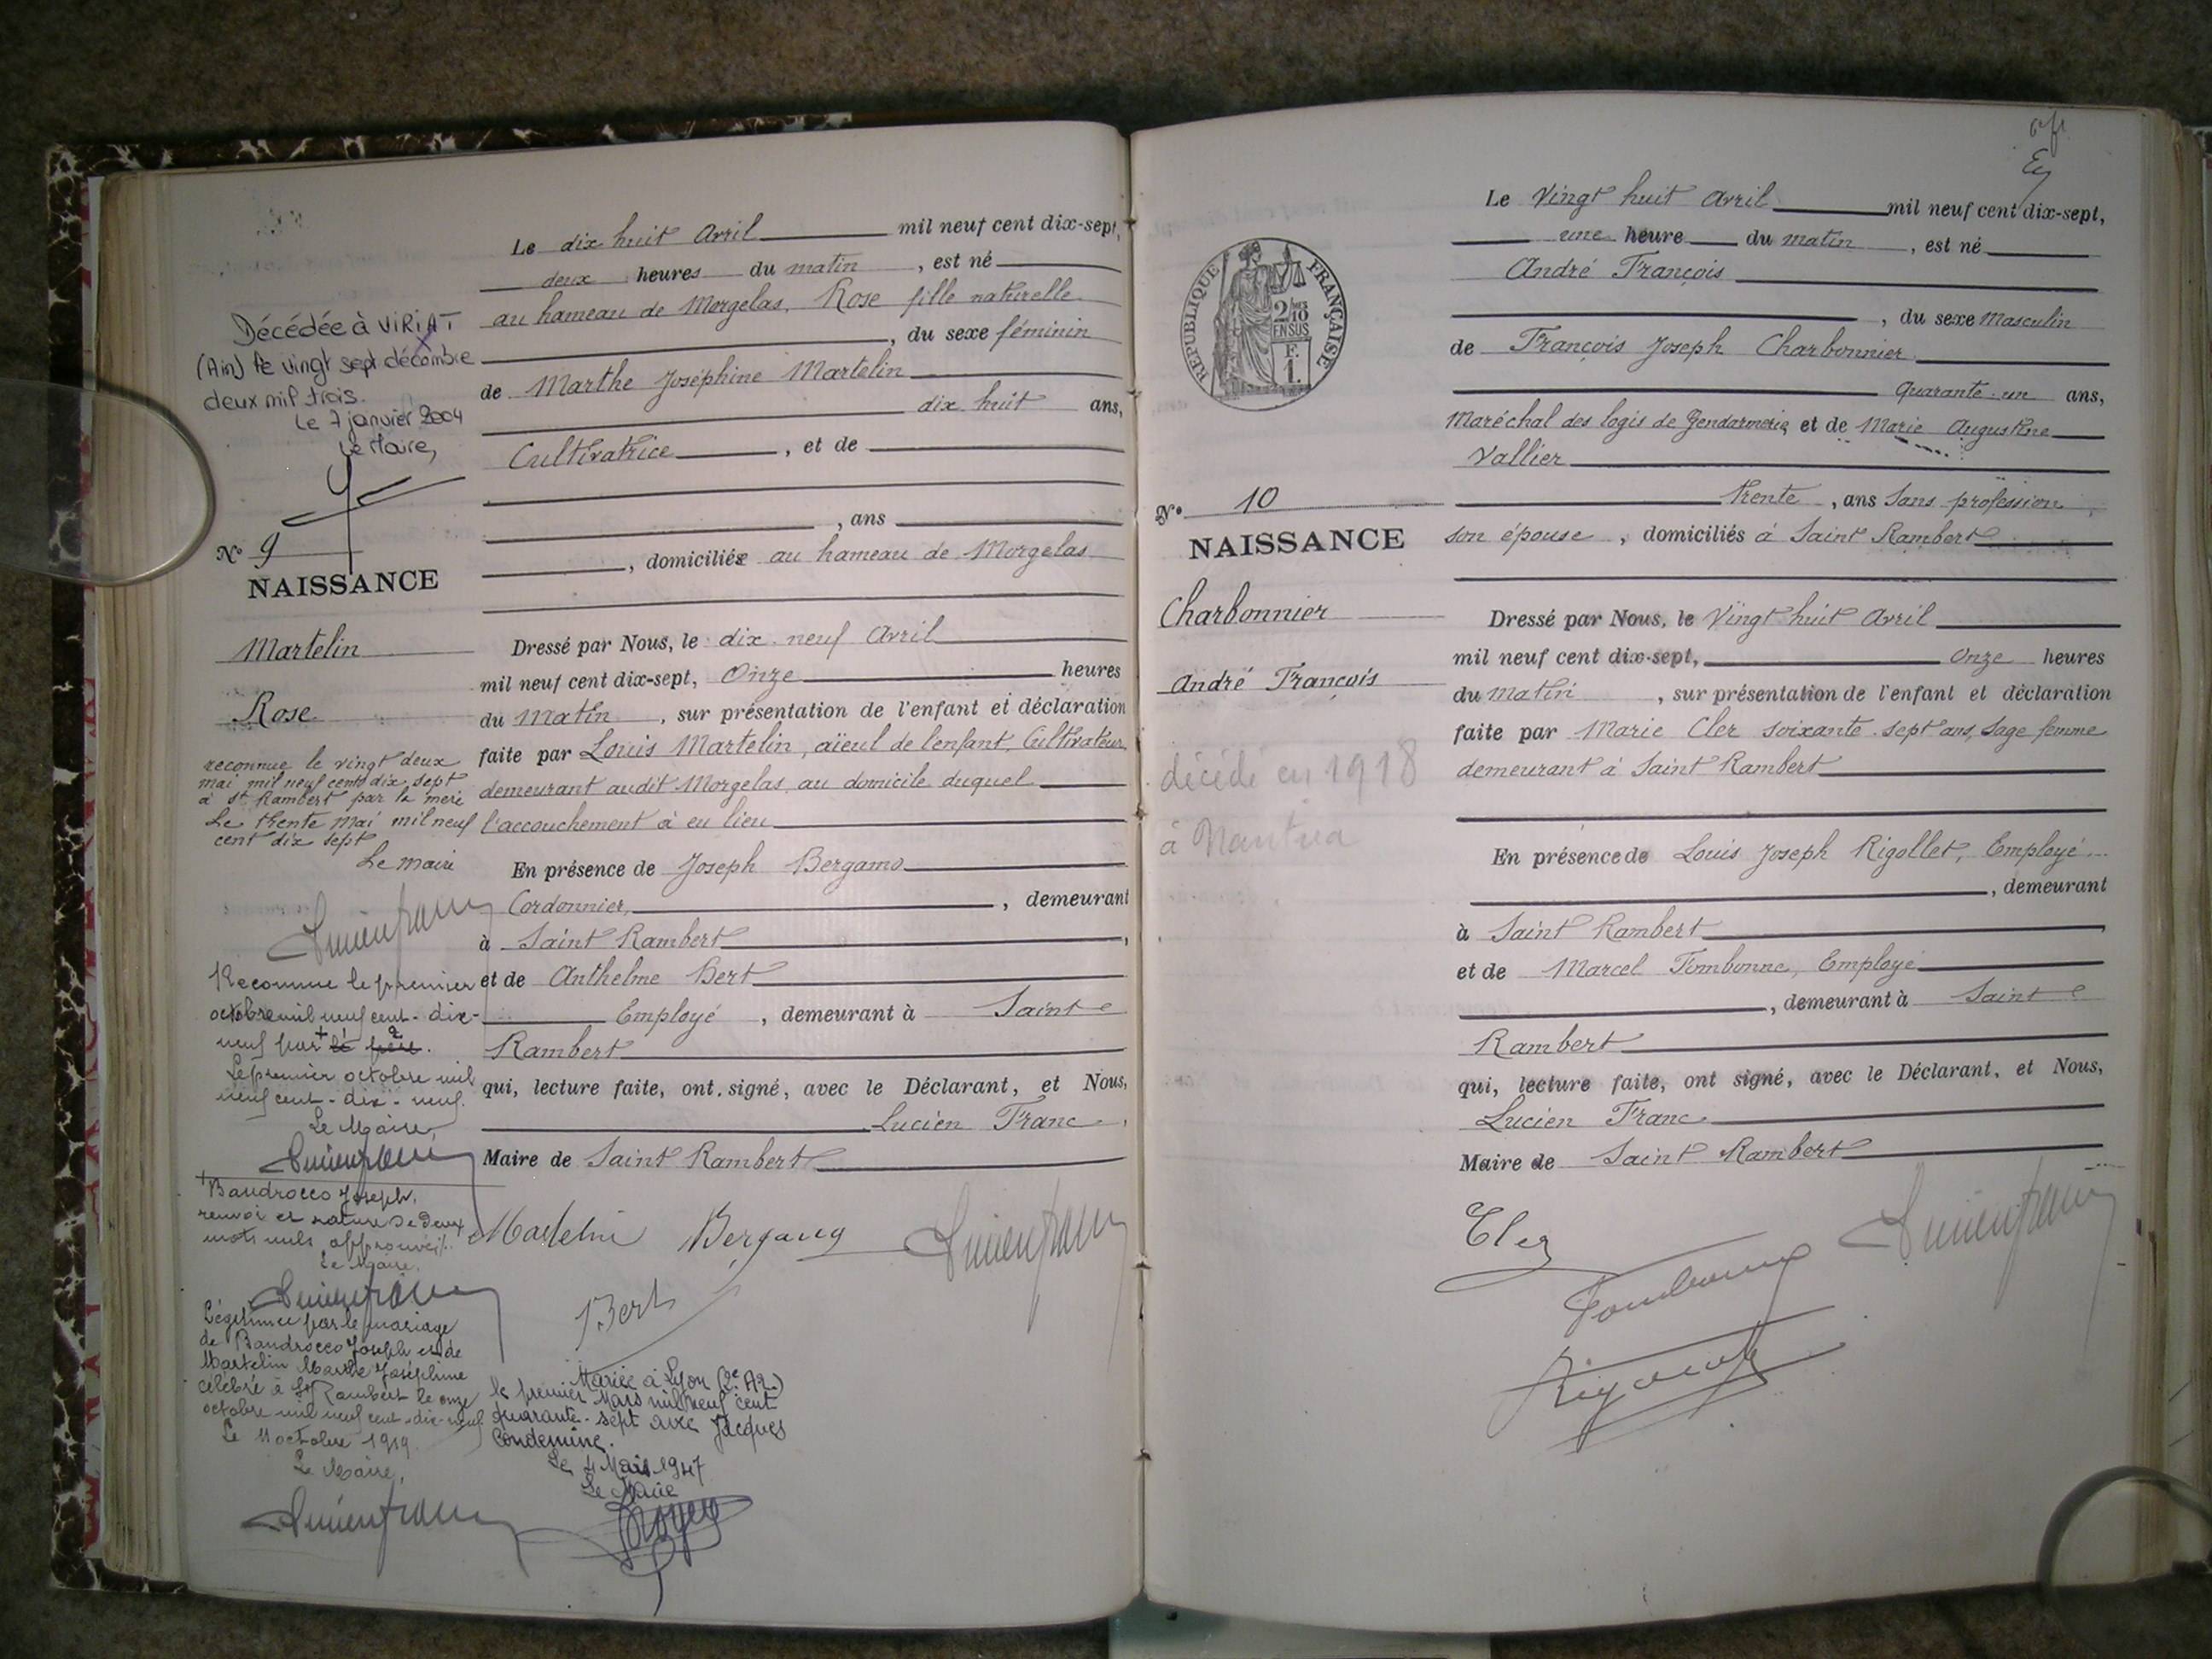 Le dix huit Avril mil neuf cent dix-sept,
deux heures du matin, est né
au hameau de Morgelas, Rose fille naturelle
, du sexe féminin
de Marthe Joséphine Martelin
dix huit ans,
Cultivatrice, et de
, ans
, domiciliée au hameau de Morgelas
Dressé par Nous, le dix neuf Avril
mil neuf cent dix-sept, Onze heures
du Matin, sur présentation de l'enfant et déclaration
faite par Louis Martelin, aïeul de l'enfant, Cultivateur,
demeurant audit Morgelas, au domicile duquel
l'accouchement à eu lieu
En présence de Joseph Bergamo
Cordonnier, , demeurant
à Saint Rambert,
et de Anthelme Bert
Employé, demeurant à Saint
Rambert
qui, lecture faite, ont signé, avec le Déclarant, et Nous,
Lucien Franc,
Maire de Saint Rambert
Martelin Bergamo Lucien Franc
Bert
Mariée à Lyon (2e Ar.)
le premier Mars mil neuf cent
quarante-sept avec Jacques
Condemine.
Le 4 Mars 1947
Le Maire
Décédée à VIRIAT
(Ain) le vingt sept décembre
deux mil trois.
Le 7 janvier 2004
Le Maire,
No 9
NAISSANCE
Martelin
Rose
reconnue le vingt deux
mai mil neuf cent dix sept
à St Rambert par la mère
Le trente Mai mil neuf
cent dix sept
Le maire
Lucien Franc
Reconnue le premier
octobre mil neuf cent-dix-
neuf par + le père.
Le premier octobre mil
neuf cent-dix-neuf.
Le Maire,
Lucien Franc
+ Baudrocco Joseph.
renvoi et rature de deux
mots nuls approuvés.
Le Maire.
Lucien Franc
Légitimée par le mariage
de Baudrocco Joseph et de
Martelin Marthe Joséphine
célébré à St Rambert le onze
octobre mil neuf cent-dix-neuf
Le 11 octobre 1919.
Le Maire,
Lucien Franc
REPUBLIQUE FRANÇAISE
2/10
EN SUS
F.
1.
Le Vingt huit Avril mil neuf cent dix-sept,
une heure du matin, est né
André François
, du sexe Masculin
de François Joseph Charbonnier
Quarante-un ans,
Maréchal des logis de Gendarmerie, et de Marie Augustine
Vallier
trente, ans Sans profession,
son épouse, domiciliés à Saint Rambert
Dressé par Nous, le Vingt huit Avril
mil neuf cent dix-sept, Onze heures
du Matin, sur présentation de l'enfant et déclaration
faite par Marie Cler soixante-sept ans, Sage femme
demeurant à Saint Rambert
En présence de Louis Joseph Rigollet, Employé
, demeurant
à Saint Rambert
et de Marcel Tombonne, Employé
, demeurant à Saint
Rambert
qui, lecture faite, ont signé, avec le Déclarant, et Nous,
Lucien Franc
Maire de Saint Rambert
Cler Lucien Franc
No 10
NAISSANCE
Charbonnier
André François
décédé en 1918
à Nantua